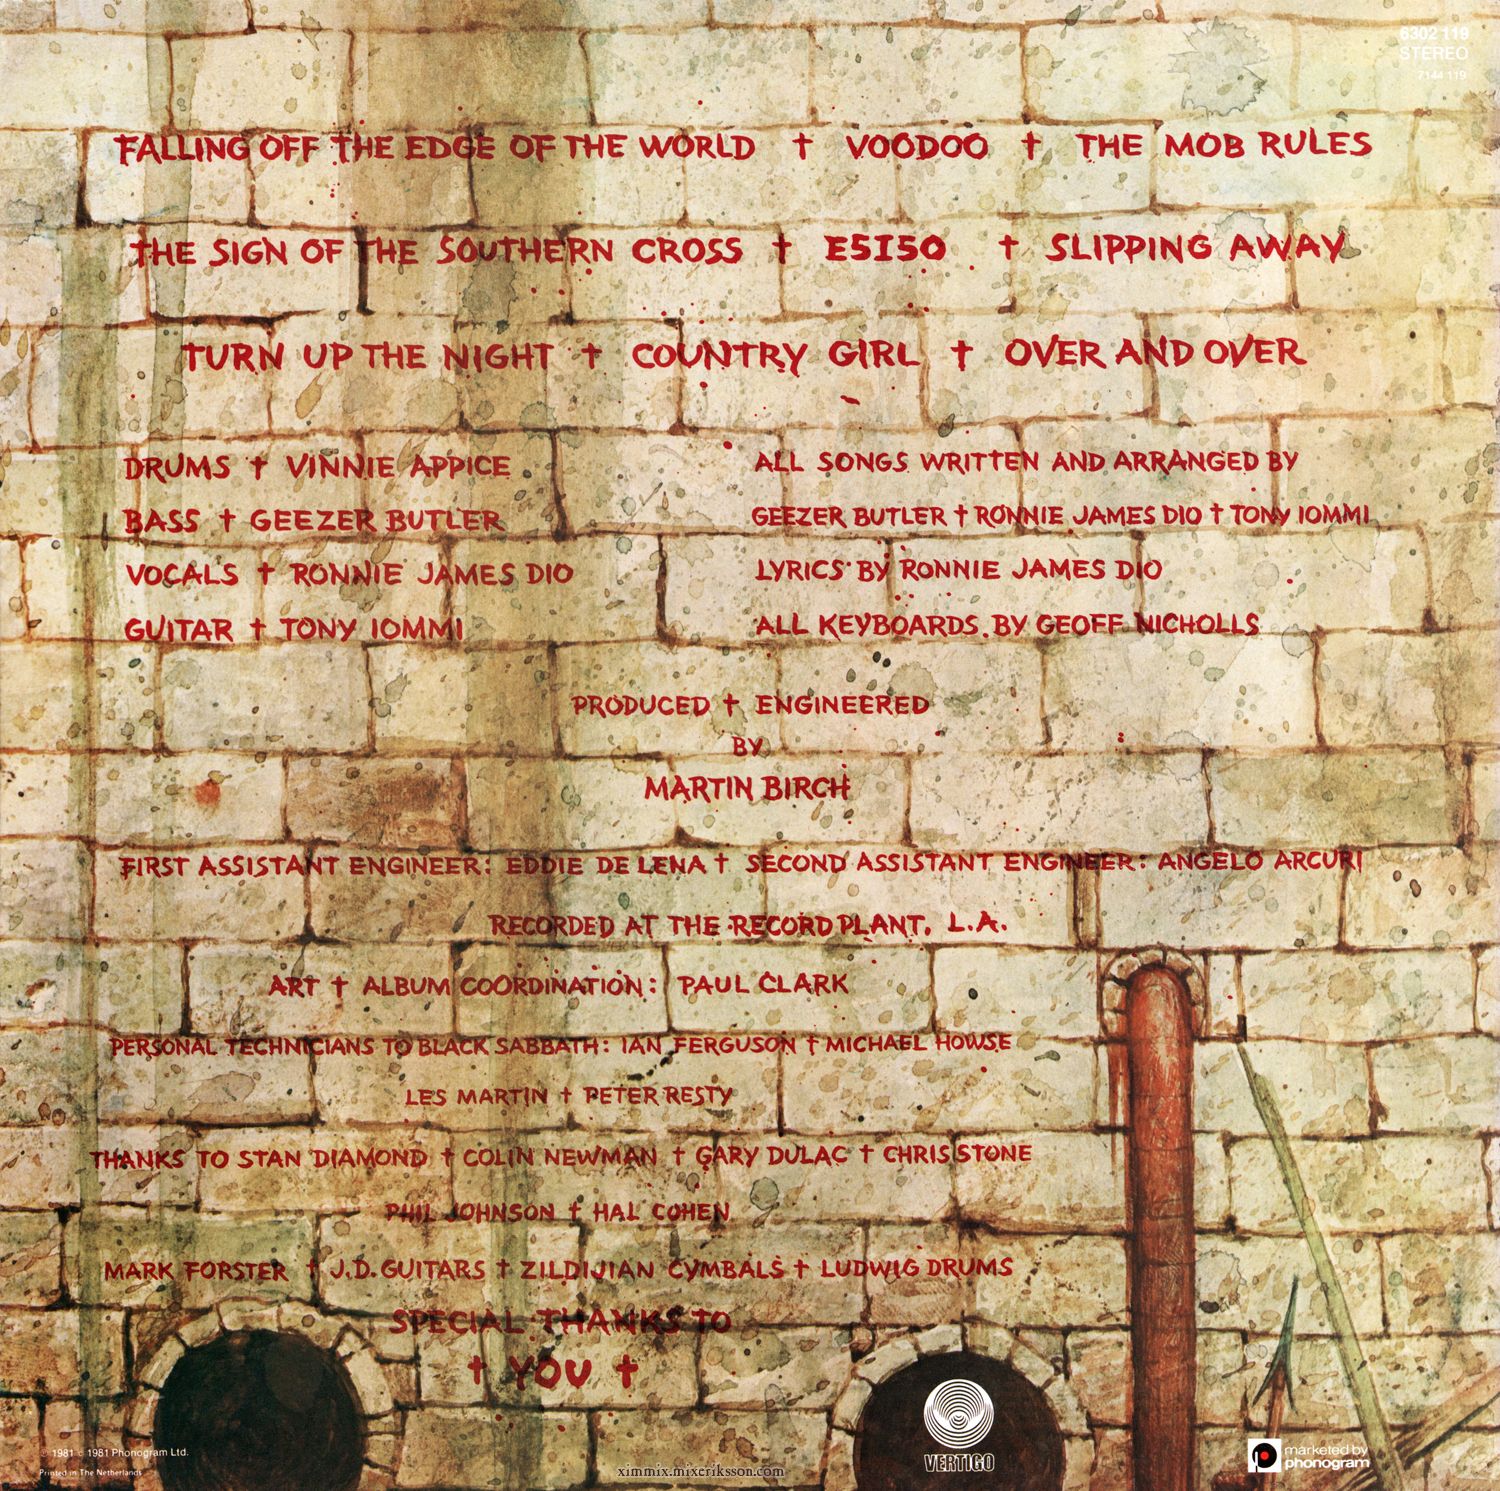 6302 119
STEREO
7144 119
FALLING OFF THE EDGE OF THE WORLD † VOODOO † THE MOB RULES
THE SIGN OF THE SOUTHERN CROSS † E5150 † SLIPPING AWAY
TURN UP THE NIGHT † COUNTRY GIRL † OVER AND OVER
DRUMS † VINNIE APPICE
BASS † GEEZER BUTLER
VOCALS † RONNIE JAMES DIO
GUITAR † TONY IOMMI
ALL SONGS WRITTEN AND ARRANGED BY
GEEZER BUTLER † RONNIE JAMES DIO † TONY IOMMI
LYRICS BY RONNIE JAMES DIO
ALL KEYBOARDS BY GEOFF NICHOLLS
PRODUCED † ENGINEERED
BY
MARTIN BIRCH
FIRST ASSISTANT ENGINEER: EDDIE DE LENA † SECOND ASSISTANT ENGINEER: ANGELO ARCURI
RECORDED AT THE RECORD PLANT, L.A.
ART † ALBUM COORDINATION: PAUL CLARK
PERSONAL TECHNICIANS TO BLACK SABBATH: IAN FERGUSON † MICHAEL HOWSE
LES MARTIN † PETER RESTY
THANKS TO STAN DIAMOND † COLIN NEWMAN † GARY DULAC † CHRIS STONE
PHIL JOHNSON † HAL COHEN
MARK FORSTER † J.D. GUITARS † ZILDIJIAN CYMBALS † LUDWIG DRUMS
SPECIAL THANKS TO
† YOU †
℗ 1981 © 1981 Phonogram Ltd.
Printed in The Netherlands
ximmix.mixeriksson.com
VERTIGO
marketed by
phonogram